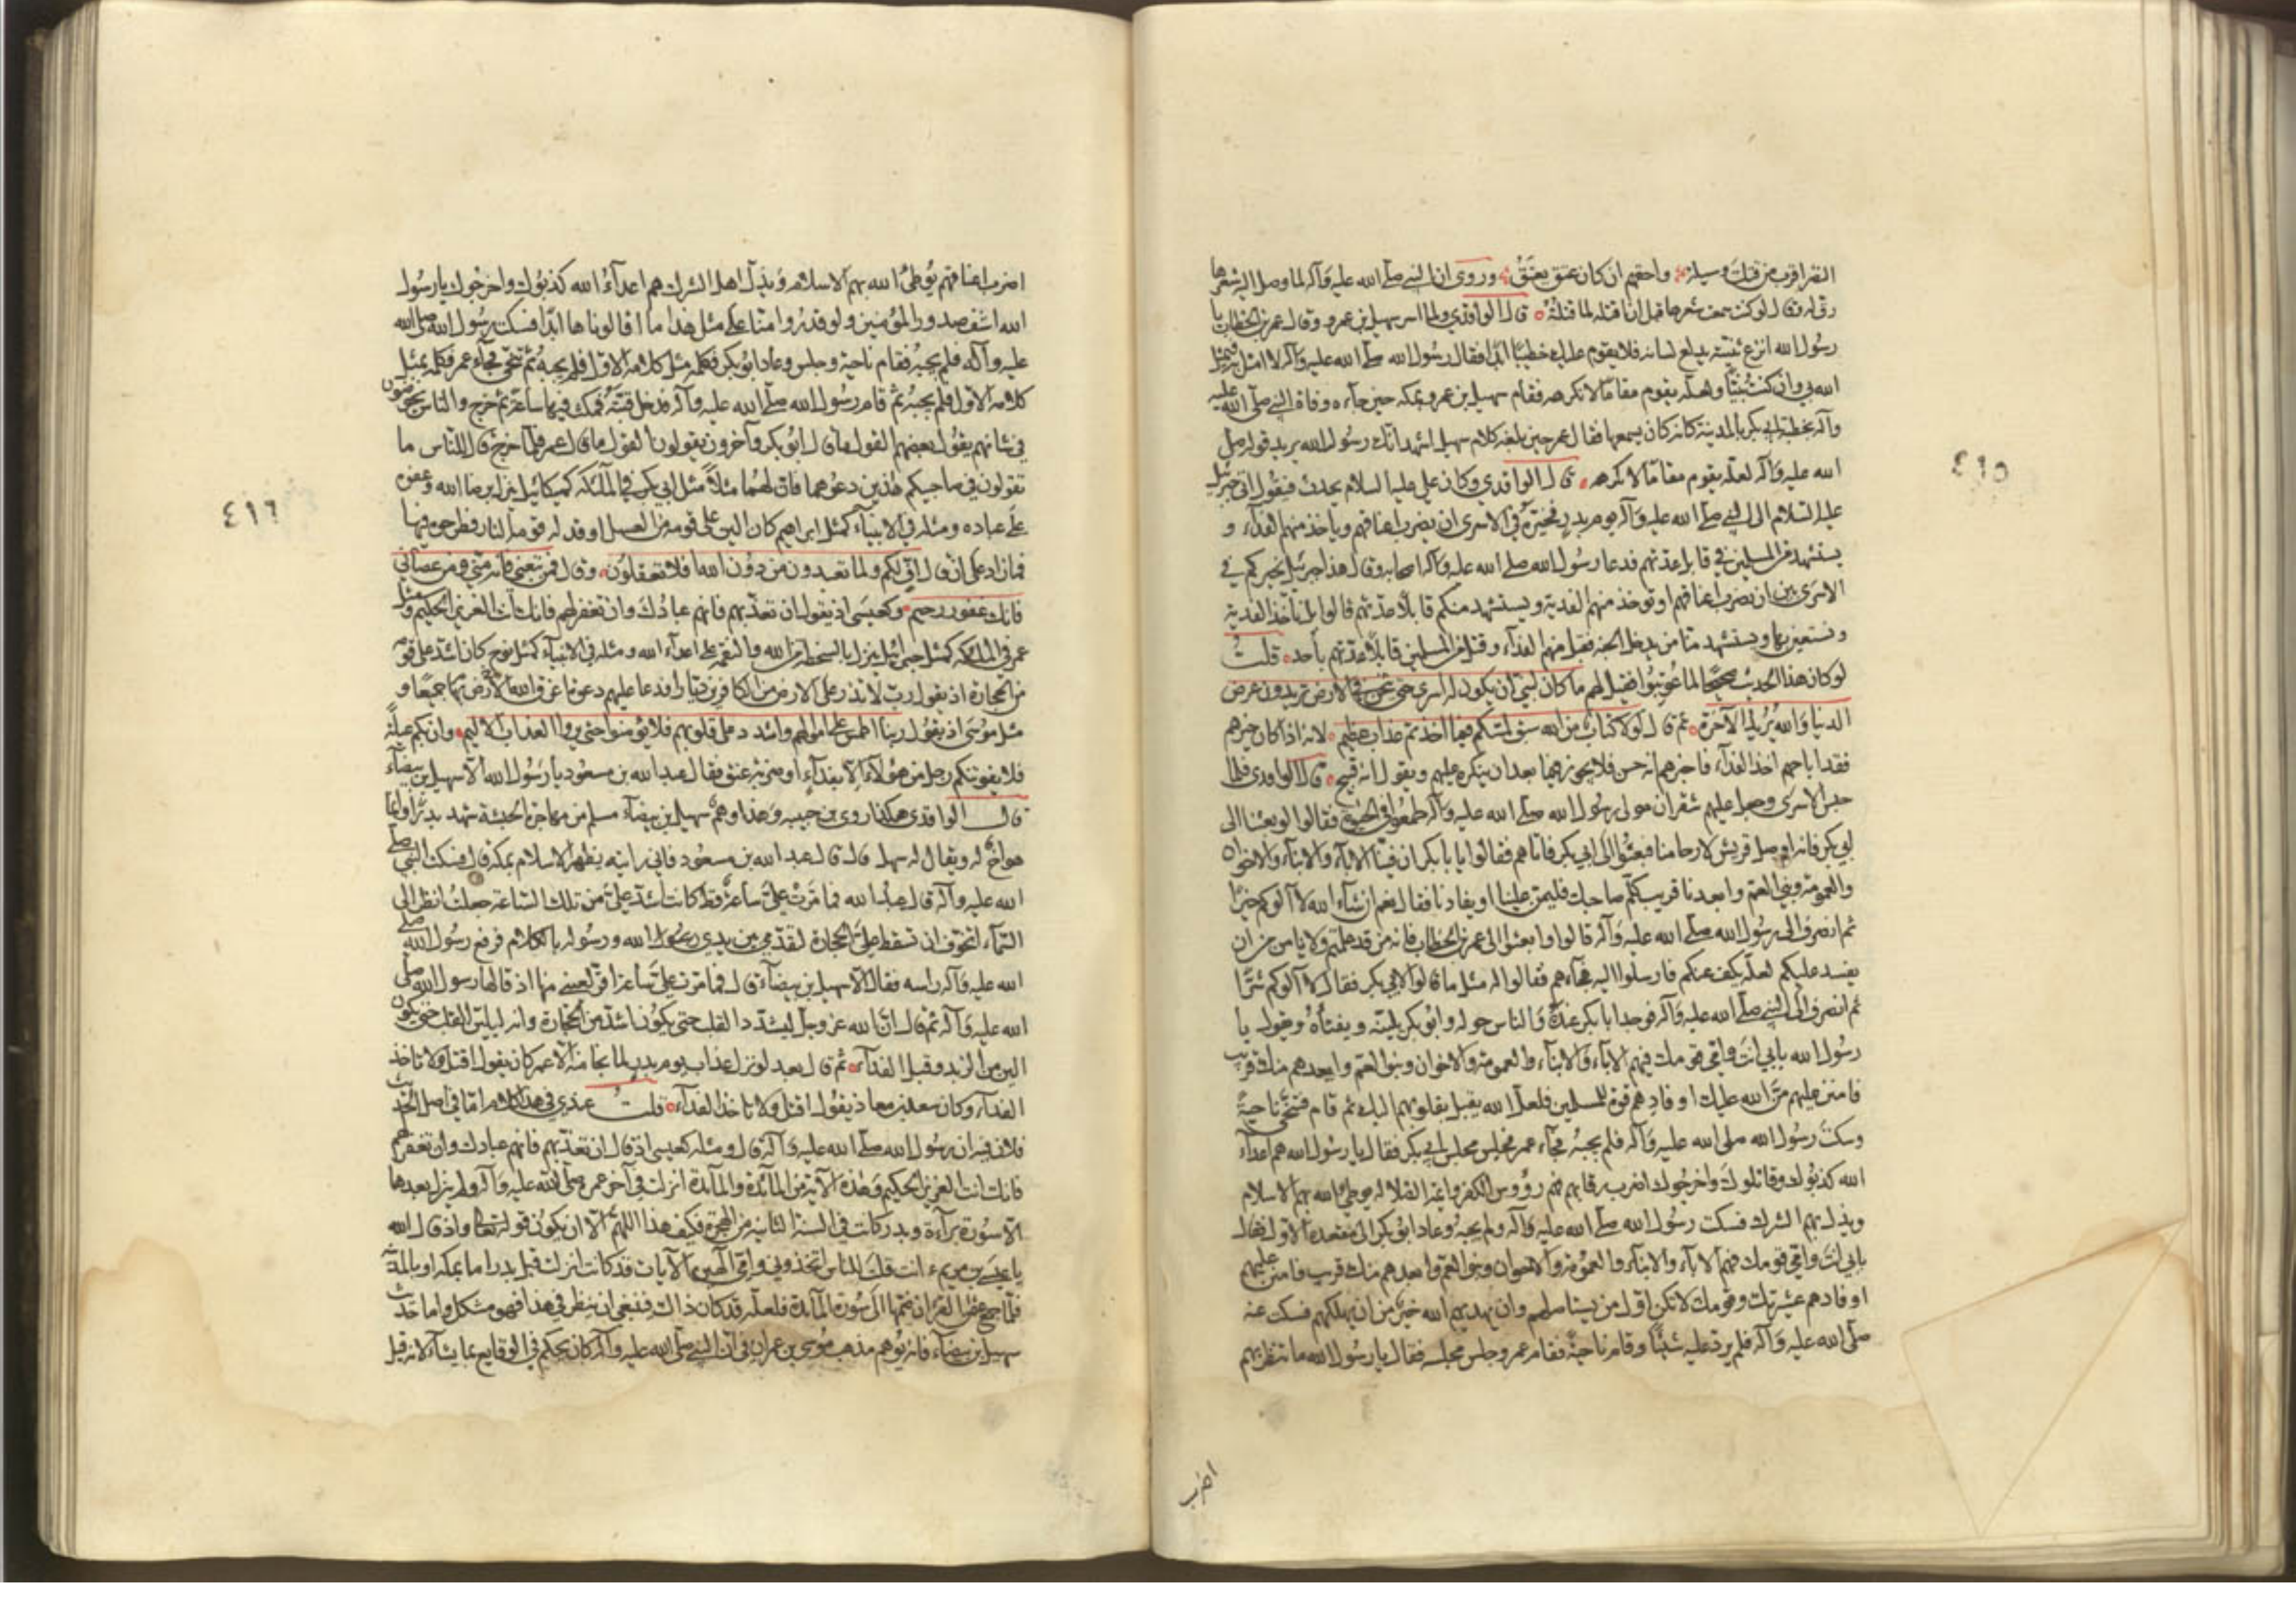 النضر اقرب من قتلت وسيلة واحقهم ان كان عتق يعتق وروى ان النبي صلى الله عليه وآله لما وصل اليه شعرها
رق له وقال لو كنت سمعت شعرها قبل ان اقتله لما قتلته قال الواقدي ولما اسر سهيل بن عمرو وقال عمر بن الخطاب يا
رسول الله انزع ثنيته يدلع لسانه فلا يقوم عليك خطيبا ابدا فقال رسول الله صلى الله عليه وآله لا امثل به فيمثل
الله بي وان كنت نبيا ولعله يقوم مقاما لا تكرهه فقام سهيل بن عمرو بمكة حين جاءه وفاة النبي صلى الله عليه
وآله بخطبة ابي بكر بالمدينة كانه كان يسمعها فقال عمر حين بلغه كلام سهيل اشهد انك رسول الله يريد قوله صلى
الله عليه وآله لعله يقوم مقاما لا تكرهه قال الواقدي وكان علي عليه السلام يحدث فيقول اتى جبرئيل
عليه السلام الى النبي صلى الله عليه وآله يوم بدر فخيره في الاسرى ان يضرب اعناقهم او ياخذ منهم الفداء و
يستشهد من المسلمين في قابل عدتهم فدعا رسول الله صلى الله عليه وآله اصحابه وقال هذا جبرئيل يخيركم في
الاسرى بين ان تضرب اعناقهم او تؤخذ منهم الفدية ويستشهد منكم قابلا عدتهم قالوا بل نأخذ الفدية
ونستعين بها ويستشهد منا من يدخل الجنة فقبل منهم الفداء وقتل من المسلمين قابلا عدتهم باحد قلت
لو كان هذا الحديث صحيحا لما عوتبوا فقيل لهم ما كان لنبي ان يكون له اسرى حتى يثخن في الارض تريدون عرض
الدنيا والله يريد الآخرة ثم قال لولا كتاب من الله سبق لمسكم فيما اخذتم عذاب عظيم لانه اذا كان خيرهم
فقد اباحهم اخذ الفداء فاخبرهم انه حسن فلا يجوز فيما بعد ان ينكره عليهم ويقول انه قبيح قال الواقدي فلما
حبس الاسرى وجعل عليهم شقران مولى رسول الله صلى الله عليه وآله طمعوا في الحيوة فقالوا لو بعثنا الى
ابي بكر فانه اوصل قريش لارحامنا فبعثوا الى ابي بكر فاتاهم فقالوا يا بابكر ان فينا الآباء والابناء والاخوان
والعمومة وبني العم وابعدنا قريب كلم صاحبك فليمن علينا او يفادنا فقال نعم ان شاء الله لا آلوكم خيرا
ثم انصرف الى رسول الله صلى الله عليه وآله قالوا وابعثوا الى عمر بن الخطاب فانه من قد علمتم ولا يامن من ان
يفسد عليكم لعله يكف عنكم فارسلوا اليه فجاءهم فقالوا له مثل ما قالوا لابي بكر فقال لا آلوكم شرا
ثم انصرف الى النبي صلى الله عليه وآله فوجد ابا بكر عنده والناس حوله وابو بكر يلينه ويفثأه ويقول يا
رسول الله بابي انت وامي قومك فيهم الآباء والابناء والعمومة والاخوان وبنو العم وابعدهم منك قريب
فامنن عليهم من الله عليك او فادهم قوة للمسلمين فلعل الله يقبل بقلوبهم اليك ثم قام فتنحى ناحية
وسكت رسول الله صلى الله عليه وآله فلم يجبه فجاء عمر فجلس مجلس ابي بكر فقال يا رسول الله هم اعداء
الله كذبوك وقاتلوك واخرجوك اضرب رقابهم فهم رؤوس الكفر وائمة الضلالة يوطئ الله بهم الاسلام
ويذل بهم الشرك فسكت رسول الله صلى الله عليه وآله ولم يجبه وعاد ابو بكر الى مقعده الاول فقال
بابي انت وامي قومك فيهم الآباء والابناء والعمومة والاخوان وبنو العم وابعدهم منك قريب فامنن عليهم
او فادهم عشيرتك وقومك لا تكن اول من يستاصلهم وان يهديهم الله خير من ان يهلكهم فسكت عنه
صلى الله عليه وآله فلم يرد عليه شيئا وقام ناحية فقام عمر وجلس مجلسه فقال يا رسول الله ما تنتظر بهم
اضرب
٤١٥
اضرب اعناقهم يوطئ الله بهم الاسلام ويذل اهل الشرك هم اعداء الله كذبوك واخرجوك يا رسول
الله اشف صدور المؤمنين ولو قدروا منا على مثل هذا ما اقالوناها ابدا فسكت رسول الله صلى الله
عليه وآله فلم يجبه فقام ناحية وجلس وعاد ابو بكر فكلمه مثل كلامه الاول فلم يجبه ثم تنحى فجاء عمر فكلمه بمثل
كلامه الاول فلم يجبه ثم قام رسول الله صلى الله عليه وآله فدخل قبته فمكث فيها ساعة ثم خرج والناس يخوضون
في شانهم يقول بعضهم القول ما قال ابو بكر وآخرون يقولون القول ما قال عمر فلما خرج قال للناس ما
تقولون في صاحبيكم هذين دعوهما فان لهما مثلا مثل ابي بكر في الملائكة كميكائيل ينزل برضا الله وعفوه
على عباده ومثله في الانبياء كمثل ابراهيم كان الين على قومه من العسل اوقد له قومه النار فطرحوه فيها
فما زاد على ان قال اف لكم ولما تعبدون من دون الله افلا تعقلون وقال فمن تبعني فانه مني ومن عصاني
فانك غفور رحيم وكعيسى اذ يقول ان تعذبهم فانهم عبادك وان تغفر لهم فانك انت العزيز الحكيم ومثل
عمر في الملائكة كمثل جبرائيل ينزل بالسخط من الله والنقمة على اعداء الله ومثله في الانبياء كمثل نوح كان اشد على قومه
من الحجارة اذ يقول رب لا تذر على الارض من الكافرين ديارا فدعا عليهم دعوة اغرق الله الارض بها جميعا و
مثل موسى اذ يقول ربنا اطمس على اموالهم واشدد على قلوبهم فلا يؤمنوا حتى يروا العذاب الاليم وان بكم عيلة
فلا يفوتنكم رجل من هؤلاء الا بفداء او ضربة عنق فقال عبد الله بن مسعود يا رسول الله الا سهيل بن بيضاء
قال الواقدي هكذا روى بن حبيبه وهذا وهم سهيل بن بيضاء مسلم من مهاجرة الحبشة شهد بدرا وانما
هو اخ له ويقال له سهل قال قال عبد الله بن مسعود فاني رايته يظهر الاسلام بمكة قال فسكت النبي صلى
الله عليه وآله قال عبد الله فما مرت علي ساعة قط كانت اشد علي من تلك الساعة جعلت انظر الى
السماء اتخوف ان تسقط علي الحجارة لتقدمي بين يدي الله ورسوله بالكلام فرفع رسول الله صلى
الله عليه وآله راسه فقال الا سهيل بن بيضاء قال فما مرت علي ساعة اقر لعيني منها اذ قالها رسول الله صلى
الله عليه وآله ثم قال ان الله عز وجل ليشدد القلب حتى يكون اشد من الحجارة وانه ليلين القلب حتى يكون
الين من الزبد وقبل الفداء ثم قال بعد لو نزل عذاب يوم بدر لما نجا منه الا عمر كان يقول اقتل ولا تاخذ
الفداء وكان سعد بن معاذ يقول اقتل ولا تاخذ الفداء قلت عندي في هذا كلام اما في اصل الحديث
فلان فيه ان رسول الله صلى الله عليه وآله قال ومثله كعيسى اذ قال ان تعذبهم فانهم عبادك وان تغفر لهم
فانك انت العزيز الحكيم وهذه الآية من المائدة والمائدة انزلت في آخر عمره صلى الله عليه وآله ولم ينزل بعدها
الا سورة براءة وبدر كانت في السنة الثانية من الهجرة فكيف هذا اللهم الا ان يكون قوله تعالى واذ قال الله
يا عيسى بن مريم ءانت قلت للناس اتخذوني وامي الهين الآيات قد كانت انزلت قبل بدر اما بمكة او بالمدينة
فلما جمع عثمن القرآن ضمها الى سورة المائدة فلعله قد كان ذلك فينبغي ان ينظر في هذا فهو مشكل واما حديث
سهيل بن بيضاء فانه يوهم مذهب موسى بن عمران في ان النبي صلى الله عليه وآله كان يحكم في الوقايع بما يشاء لانه قيل
٤١٦